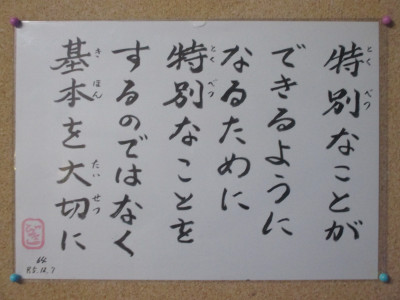 特別なことが
できるように
なるために
特別なことを
するのではなく
基本を大切に